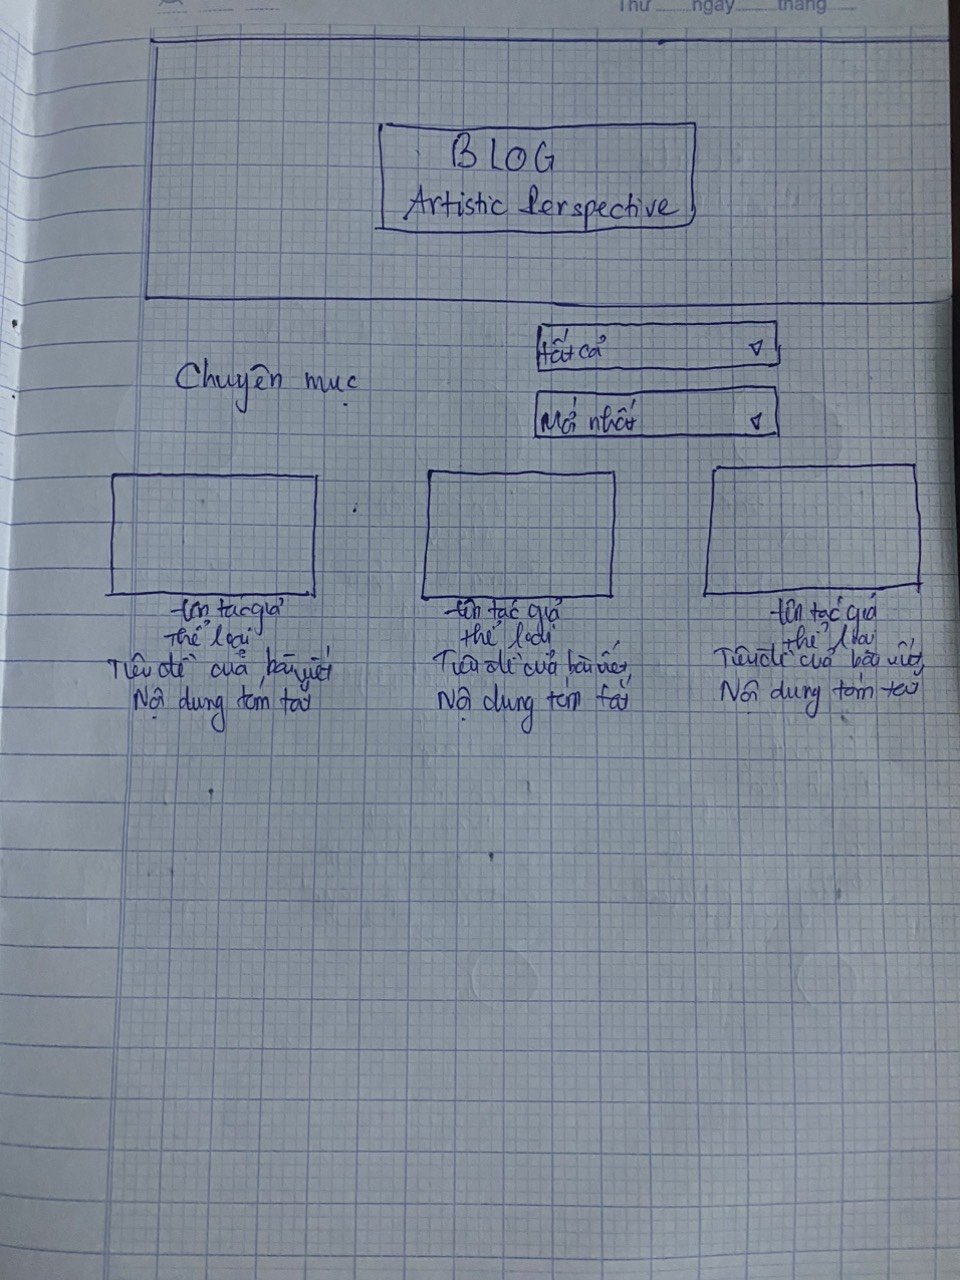 Thứ ngày tháng
BLOG
Artistic Perspective
tất cả
Chuyên mục
Mới nhất
tên tác giả
thể loại
Tiêu đề của bài viết
Nội dung tóm tắt
tên tác giả
thể loại
Tiêu đề của bài viết
Nội dung tóm tắt
tên tác giả
thể loại
Tiêu đề của bài viết
Nội dung tóm tắt